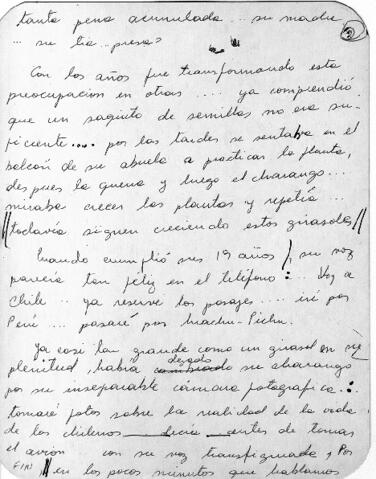 tanta pena acumulada.. su madre
... su tía.. presa?
Con los años fue transformando esta
preocupación en otras .... ya comprendió
que un saquito de semillas no era su-
ficiente.... por las tardes se sentaba en el
balcón de su abuela a practicar la flauta,
despues la quena y luego el charango...
miraba crecer las plantas y repetía...
todavía siguen creciendo estos girasoles
Cuando cumplió sus 19 años, su voz
parecía tan feliz en el teléfono: .. Voy a
Chile .. ya reservé los pasajes.... iré por
Perú ... pasaré por Machu-Pichu.
Ya casi tan grande como un girasol en su
plenitud había dejado su charango
por su inseparable cámara fotografica...
tomaré fotos sobre la realidad de la vida
de los chilenos decía antes de tomar
el avión con su voz transfigurada y Por
FIN en los pocos minutos que hablamos